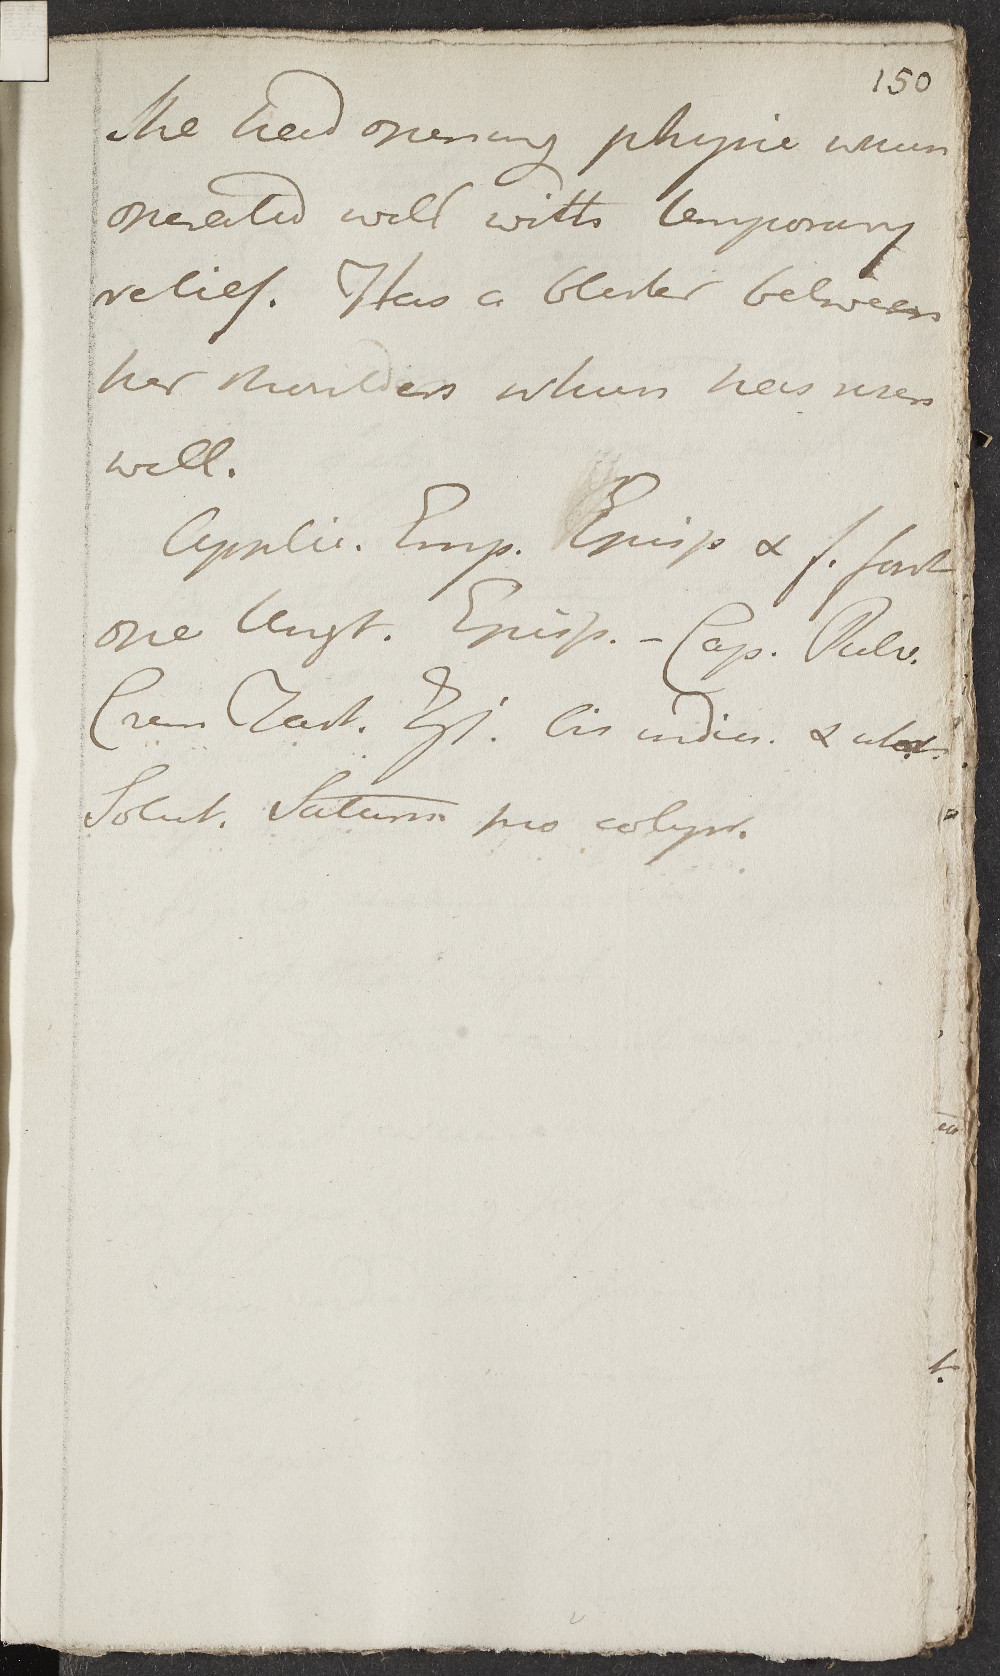 150
She had opening physic which
operated well with temporary
relief. Has a blister between
her shoulders which has risen
well.
Applic. Emp. Episp & f. font
ope Ungt. Episp. - Cap. Pulv.
Crem Tart. ʒj. bis indies. &
Solut. Saturni pro colyr.